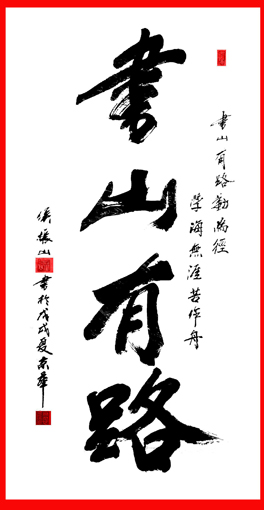 書山有路勤為徑
學海無涯苦作舟
書山有路
書於戊戌夏京華